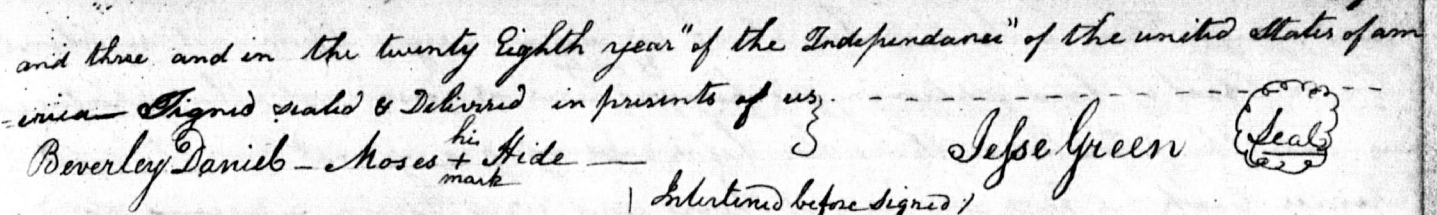 and three and in the twenty Eighth year "of the Independance" of the united States of am
=erica — Signed sealed & Delivered in presents of us
Beverley Daniel – Moses his + mark Hide — Jesse Green Seal
( Interlined before signed )